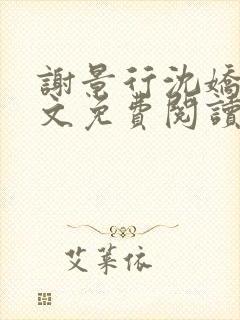 謝景行沈嬌
文免費閱讀
艾萊依